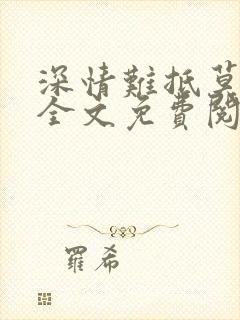 深情難抵莫
全文免費閱
羅希